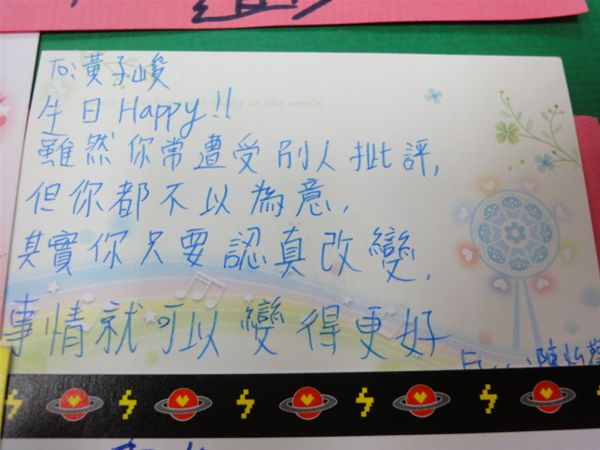 To:黃子峻
生日Happy!!
thing in the world.
雖然你常遭受別人批評,
但你都不以為意,
其實你只要認真改變,
事情就可以變得更好
陳怡